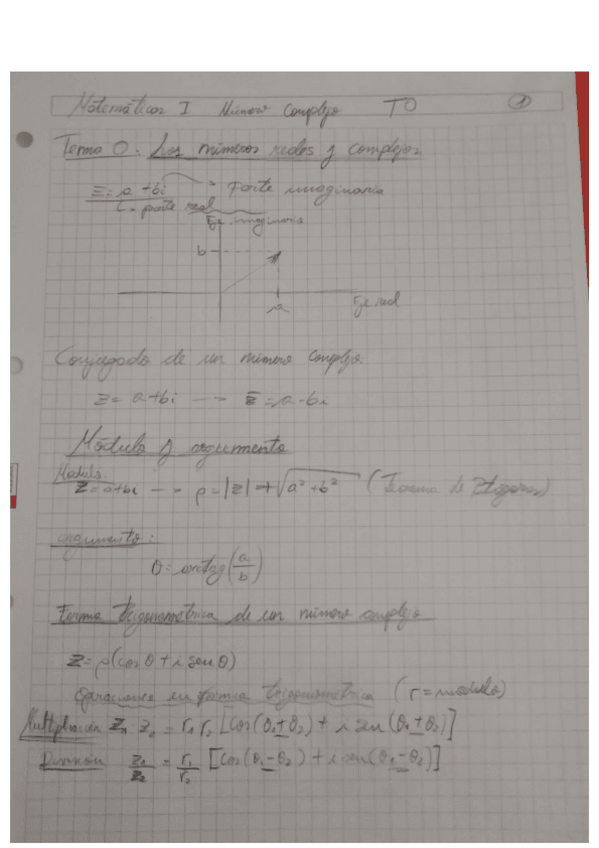 Matemáticas I Número Complejo T0 1
Tema 0. Los números reales y complejos
z = a + bi → Parte imaginaria
↳ parte real
Eje imaginario
b
a
Eje real
Conjugado de un número complejo
z = a+bi --→ z̄ = a-bi
Módulo y argumento
Módulo
z = a+bi --→ ρ = |z| = +√(a² + b²) (Teorema de Pitágoras)
Argumento:
θ = arctag(a/b)
Forma trigonométrica de un número complejo
z = ρ(cos θ + i sen θ)
Operaciones en forma trigonométrica (r = módulo)
Multiplicación z₁ z₂ = r₁ r₂ [cos(θ₁+θ₂) + i sen(θ₁+θ₂)]
División z₁/z₂ = r₁/r₂ [cos(θ₁-θ₂) + i sen(θ₁-θ₂)]